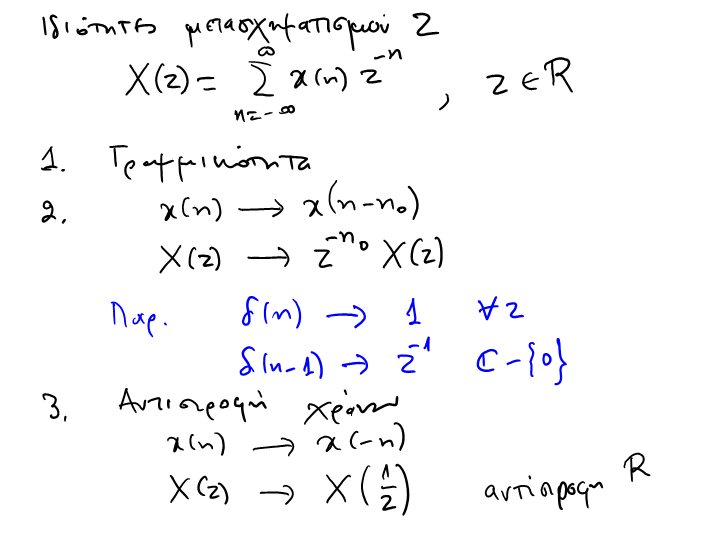 Ιδιότητες μετασχηματισμού Z
X(z) = ∑_{n=-∞}^{∞} x(n) z^{-n} , z ∈ R
1. Γραμμικότητα
2. x(n) → x(n-n₀)
X(z) → z^{-n₀} X(z)
Παρ. δ(n) → 1 ∀z
δ(n-1) → z^{-1} ℂ-{0}
3. Αντιστροφή χρόνου
x(n) → x(-n)
X(z) → X(1/z) αντίστροφη R